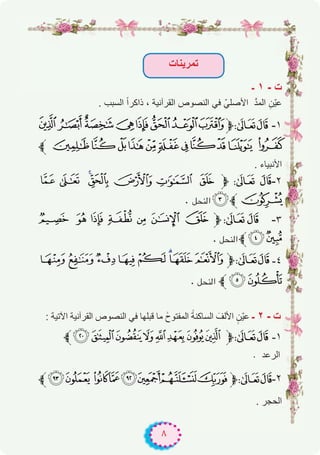 تمرينات
ت - ١ -
عيّن المدَّ الأصليّ في النصوص القرآنية ، ذاكراً السبب .
١- قَالَ تَعَالَىٰ: ﴿ وَٱقۡتَرَبَ ٱلۡوَعۡدُ ٱلۡحَقُّ فَإِذَا هِيَ شَٰخِصَةٌ أَبۡصَٰرُ ٱلَّذِينَ
كَفَرُواْ يَٰوَيۡلَنَا قَدۡ كُنَّا فِي غَفۡلَةٖ مِّنۡ هَٰذَا بَلۡ كُنَّا ظَٰلِمِينَ ﴾
الأنبياء .
٢- قَالَ تَعَالَىٰ: ﴿ خَلَقَ ٱلسَّمَٰوَٰتِ وَٱلۡأَرۡضَ بِٱلۡحَقِّۚ تَعَٰلَىٰ عَمَّا
يُشۡرِكُونَ ٣ ﴾ النحل .
٣- قَالَ تَعَالَىٰ: ﴿ خَلَقَ ٱلۡإِنسَٰنَ مِن نُّطۡفَةٖ فَإِذَا هُوَ خَصِيمٞ
مُّبِينٞ ٤ ﴾ النحل .
٤- قَالَ تَعَالَىٰ: ﴿ وَٱلۡأَنۡعَٰمَ خَلَقَهَاۖ لَكُمۡ فِيهَا دِفۡءٞ وَمَنَٰفِعُ وَمِنۡهَا
تَأۡكُلُونَ ٥ ﴾ النحل .
ت - ٢ - عيّن الألف الساكنةَ المفتوحَ ما قبلها في النصوص القرآنية الآتية :
١- قَالَ تَعَالَىٰ: ﴿ ٱلَّذِينَ يُوفُونَ بِعَهۡدِ ٱللَّهِ وَلَا يَنقُضُونَ ٱلۡمِيثَٰقَ ٢٠ ﴾
الرعد .
٢- قَالَ تَعَالَىٰ: ﴿ فَوَرَبِّكَ لَنَسۡـَٔلَنَّهُمۡ أَجۡمَعِينَ ٩٢ عَمَّا كَانُواْ يَعۡمَلُونَ ٩٣ ﴾
الحجر .
٨